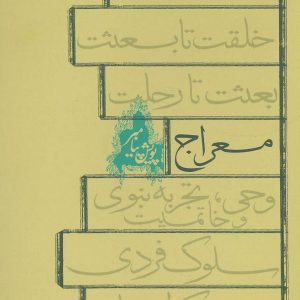 خلقت تا بعثت
بعثت تا رحلت
معراج
پویش پیامبر
وحی، تجربه نبوی
و خاتمیت
سلوک فردی